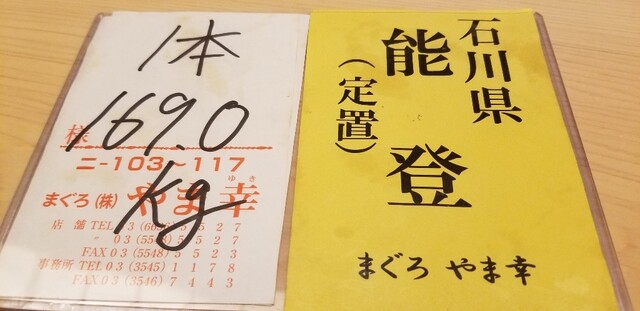 1本
169.0
kg
様
ニ-103~117
まぐろ(株)やま幸
ゆき
店舗 TEL 03
5527
〃 03(5548)5527
FAX 03(5548)5523
事務所 TEL 03(3545)1178
FAX 03(3546)7443
石川県
能登
(定置)
まぐろ やま幸